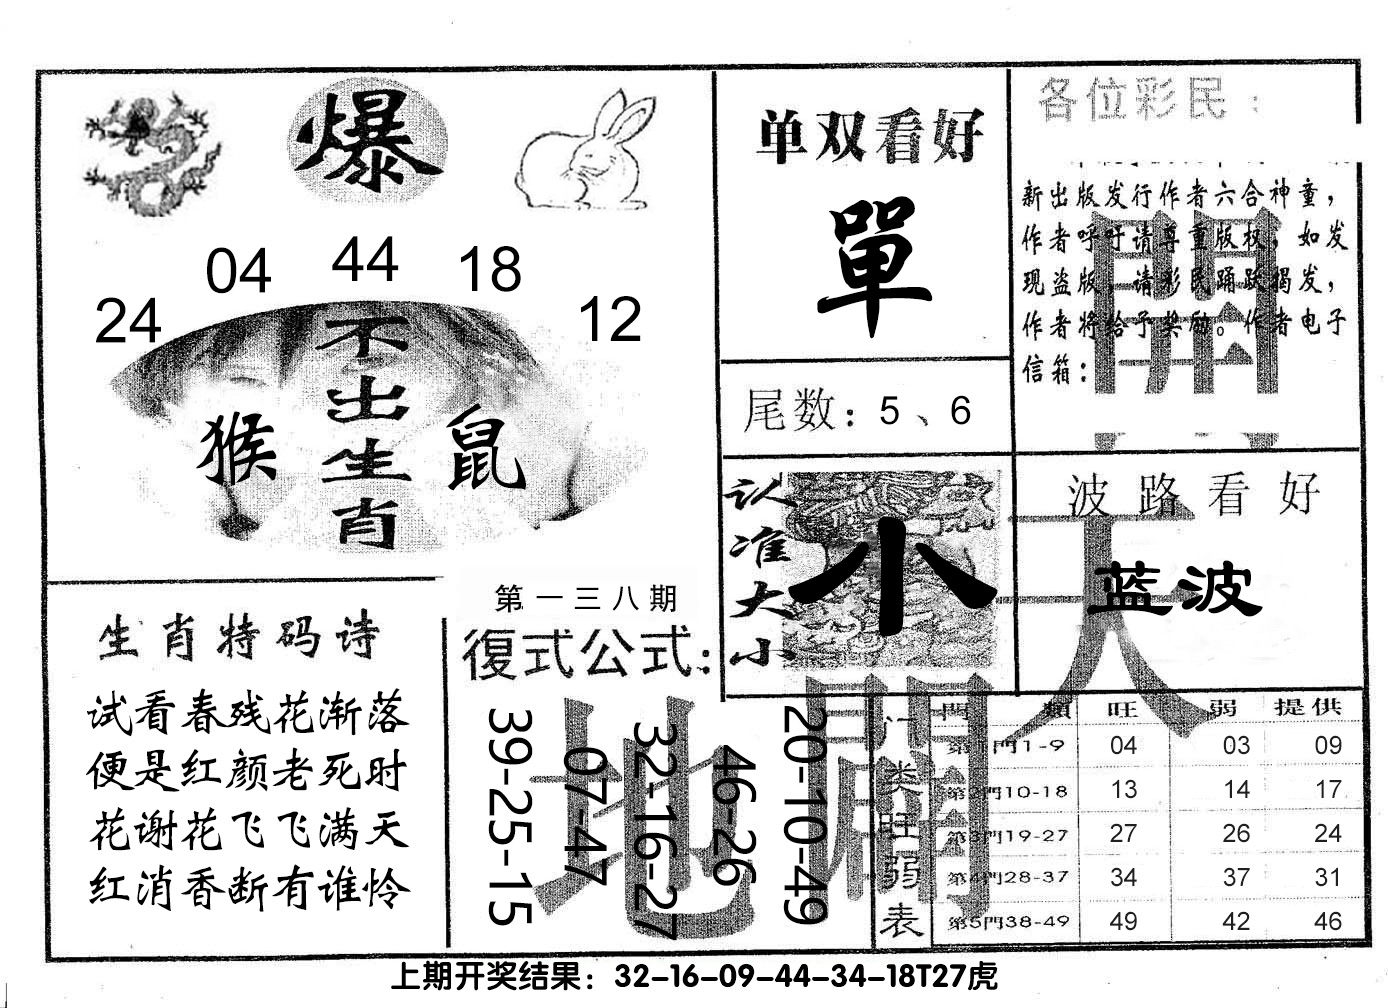 爆
24 04 44 18 12
不出生肖
猴 鼠
单双看好
單
尾数：5、6
各位彩民：
新出版发行作者六合神童，
作者呼吁请尊重版权，如发
现盗版，请彩民踊跃揭发，
作者将给予奖励。作者电子
信箱：
認准大小
小
波路看好
蓝波
天
地
開
開
生肖特码诗
试看春残花渐落
便是红颜老死时
花谢花飞飞满天
红消香断有谁怜
第一三八期
復式公式：
39-25-15
07-47
32-16-27
46-26
20-10-49
门类旺弱表
門類 旺 弱 提供
第1門1-9 04 03 09
第2門10-18 13 14 17
第3門19-27 27 26 24
第4門28-37 34 37 31
第5門38-49 49 42 46
上期开奖结果：32-16-09-44-34-18T27虎